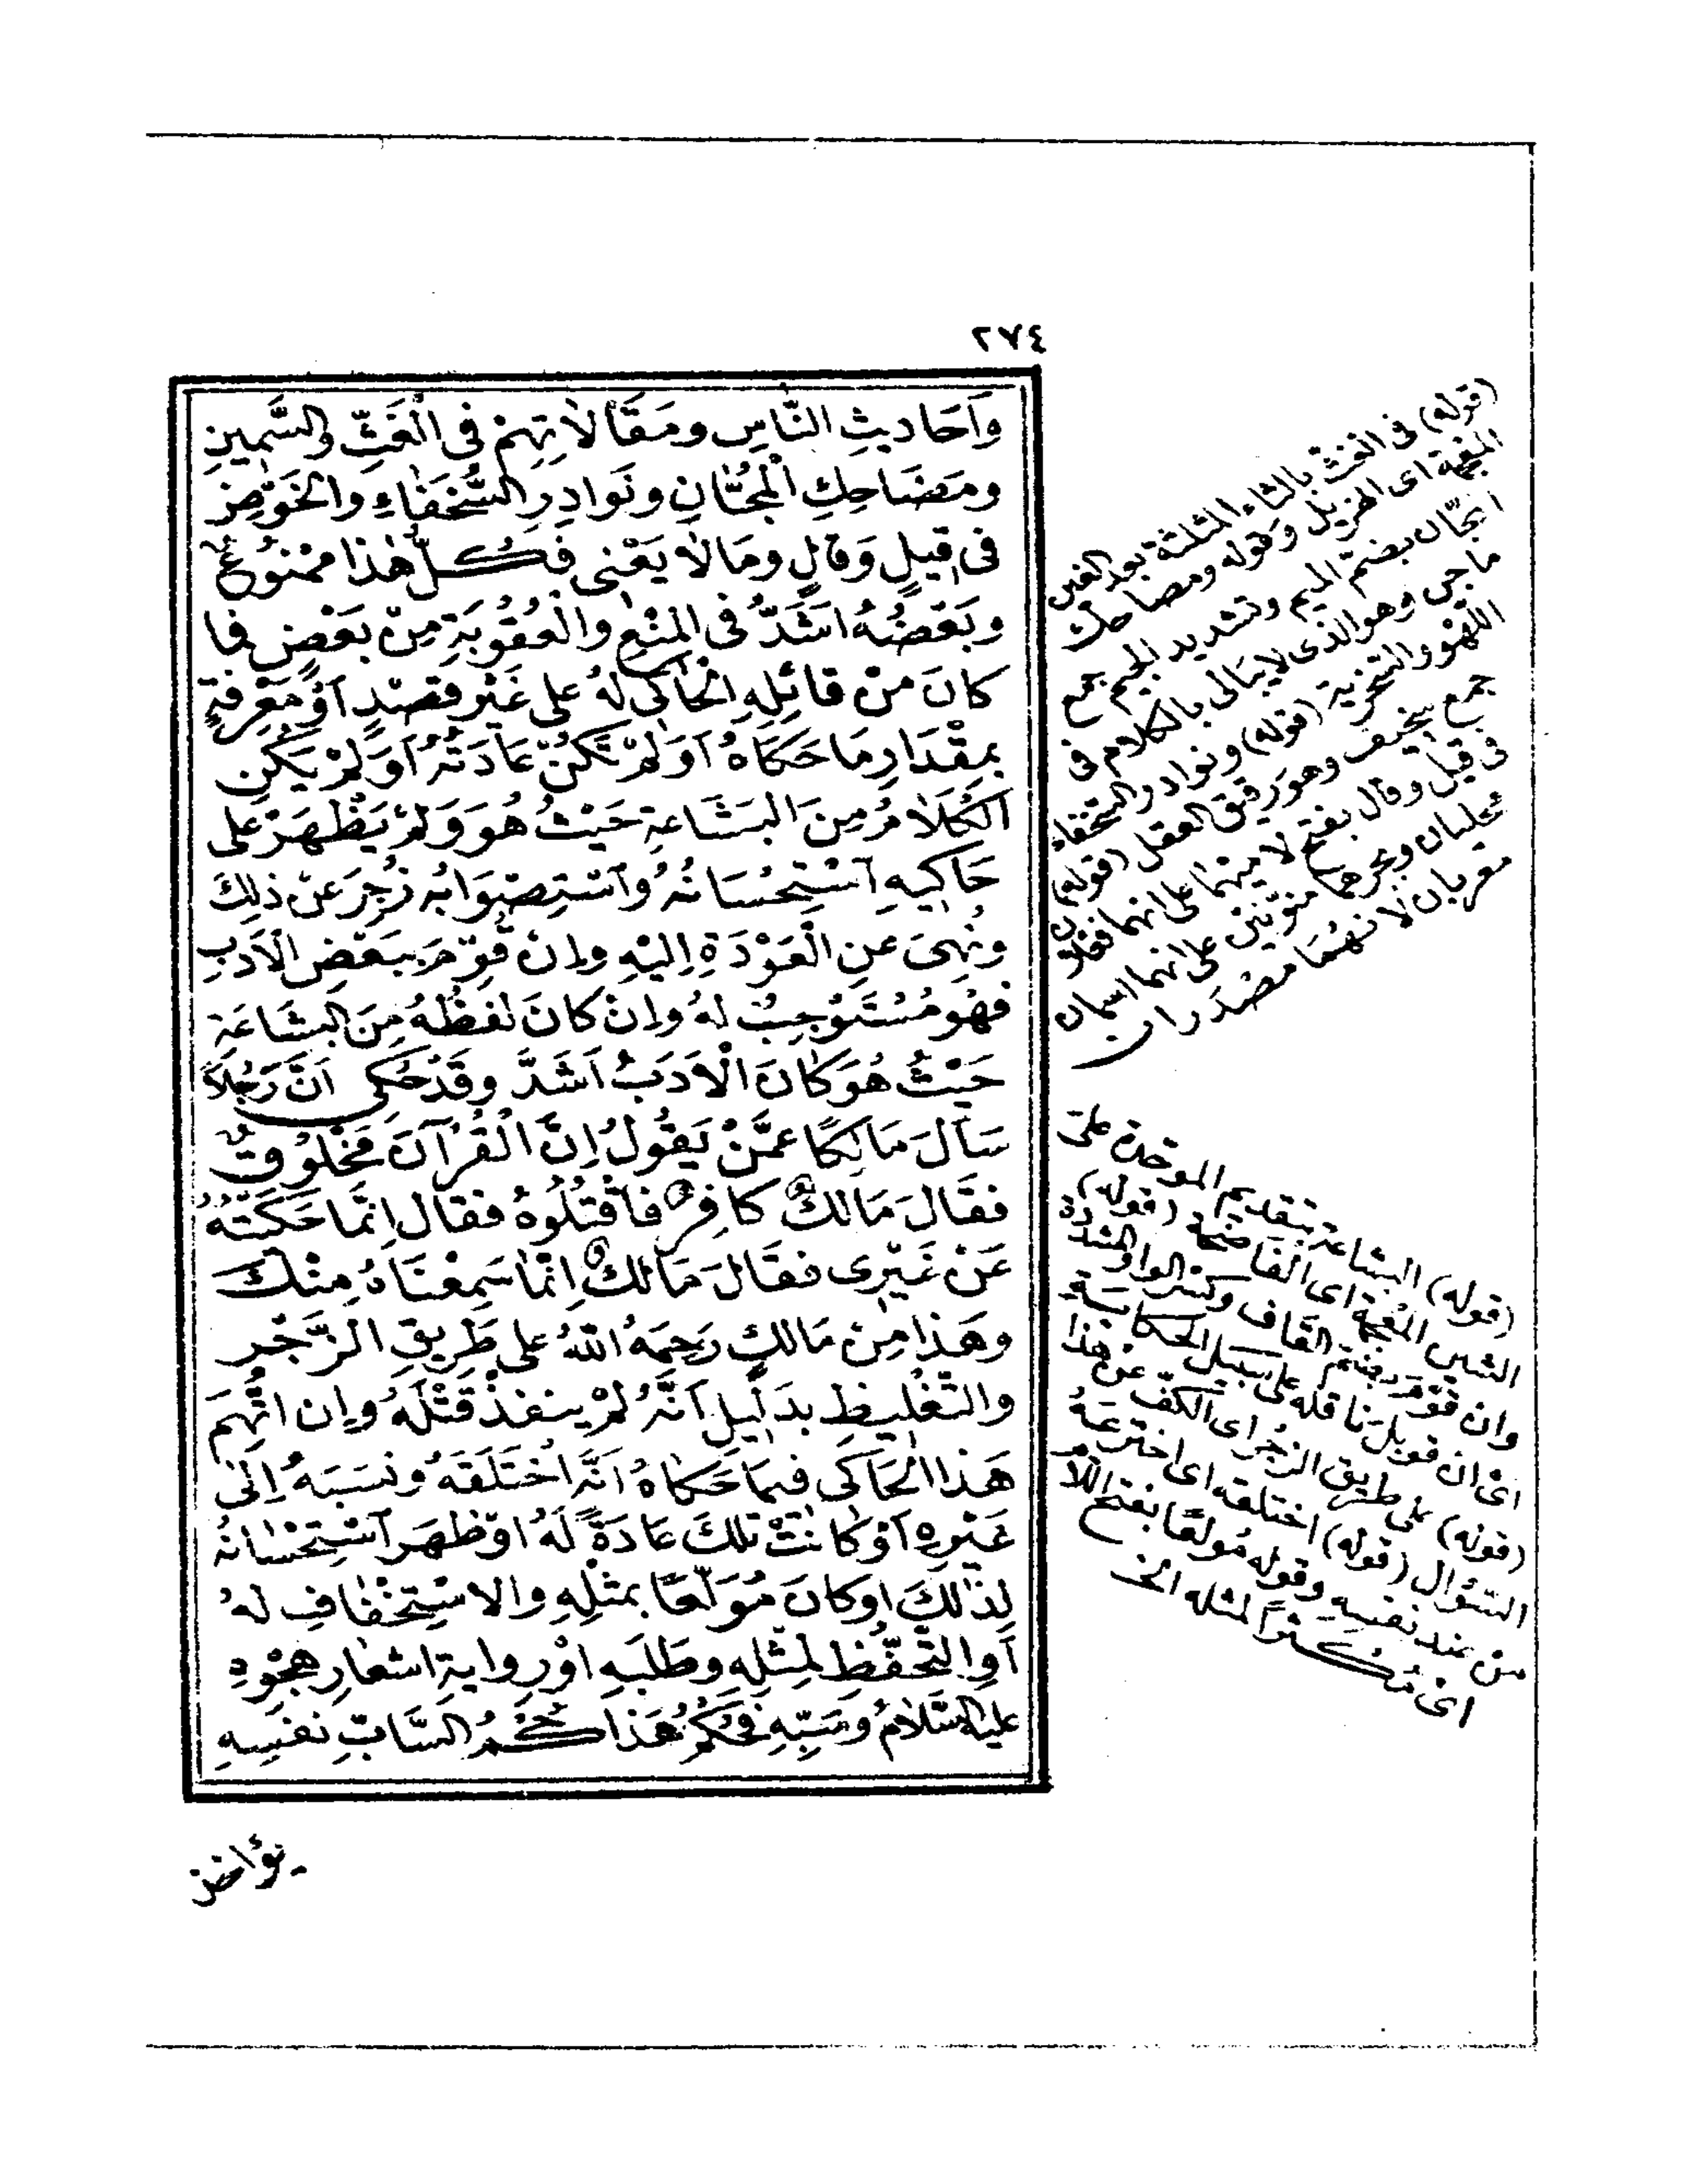 ٢٧٤
وَاَحَاديثِ النَّاسِ ومَقَالَاتِهِمْ فى الْغَثِّ والسَّمِينِ
ومَضَاحِكِ الْمُجَّانِ ونَوَادِرِ السُّخَفَاءِ والخَوْضِ
فى قِيلٍ وَقَالٍ ومَا لَا يَعْنِى فَكُلُّ هٰذا مَمْنُوعٌ
وبَعْضُهُ اَشَدُّ فى المَنْعِ والْعُقُوبَةِ مِنْ بَعْضٍ فما
كانَ مِنْ قائِلِهِ الحَاكى لَهُ على غَيْرِ قَصْدٍ اَوْ مَعْرِفَةٍ
بِمِقْدَارِ مَا حَكَاهُ اَوَلَمْ تَكُنْ عَادَتَهُ اَوَلَمْ يَكُنِ
الكَلَامُ مِنَ البَشَاعَةِ حَيْثُ هُوَ وَلَمْ يَظْهَرْ على
حَاكِيهِ اسْتِحْسَانُهُ وَاسْتِصْوَابُه زُجِرَ عَنْ ذلِكَ
ونُهِىَ عنِ الْعَوْدَةِ اِلَيْهِ وإنْ قُوِّمَ بِبَعْضِ الْاَدَبِ
فهُو مُسْتَوْجِبٌ لهُ وإنْ كانَ لفظُهُ مِنَ البَشَاعَةِ
حَيْثُ هُوَ كانَ الْاَدَبُ اَشَدَّ وقَدْ حُكِى اَنَّ رَجُلاً
سَاَلَ مَالِكًا عَمَّنْ يَقُولُ اِنَّ الْقُرْآنَ مَخْلُوقٌ
فقَالَ مَالكٌ كافِرٌ فاقْتُلُوهُ فقالَ اِنَّمَا حَكَيْتُهُ
عَنْ غَيْرِى فقَالَ مَالكٌ اِنَّمَا سَمِعْنَاهُ مِنْكَ
وهَذا مِنْ مَالكٍ رَحِمَهُ اللهُ على طَرِيقِ الزَّجْرِ
والتَّغْلِيظِ بدَلِيلِ اَنَّهُ لَمْ ينفذْ قَتْلَهُ وإن اتُّهِمَ
هَذا الحَاكى فيمَا حَكاهُ اَنَّهُ اخْتَلَقَهُ ونسَبَهُ اِلَى
غَيْرِهِ اَوْ كانَتْ تلكَ عَادَةً لَهُ اوْ ظهَرَ اسْتِحْسَانُهُ
لِذَلكَ اوْ كانَ مُوْلَعًا بمثْلِهِ والاسْتِخْفَافِ لهُ
اَوِ التَّحَفُّظِ لِمِثْلِهِ وطَلَبِهِ اوْ رِوايةِ اشعارِ هجْوِهِ
عليه السَّلَامُ وَسَبِّهِ فَحُكْمُ هَذا حُكْمُ السَّابِّ نَفسِهِ
يؤاخذ
(قوله) فى الغث بالثاء المثلثة بعد الغين
المعجمة اى الهزيل وقوله ومضاحك
المجّان بضم الميم وتشديد الجيم جمع
ماجن وهو الذى لا يبالى بالكلام فى
اللهو والسخرية (قوله) ونوادر السخفاء
جمع سخيف وهو رقيق العقل (قوله)
فى قيل وقال بفتح لاميهما على انهما فعلان
محكيان وبجرهما منونين على انهما اسمان
معربان لا نهما مصدران
(قوله) البشاعة بتقديم الموحدة على
الشين المعجمة اى الفاضحة (قوله)
وان قوّم بضم القاف وكسر الواو المشددة
اى ان قوبل ناقله على سبيل الحكاية
(قوله) على طريق الزجر اى الكف عن هذا
السؤال (قوله) اختلقه اى اخترعه
من عند نفسه وقوله مولعا بفتح اللام
اى مكثرا لمثله الخ